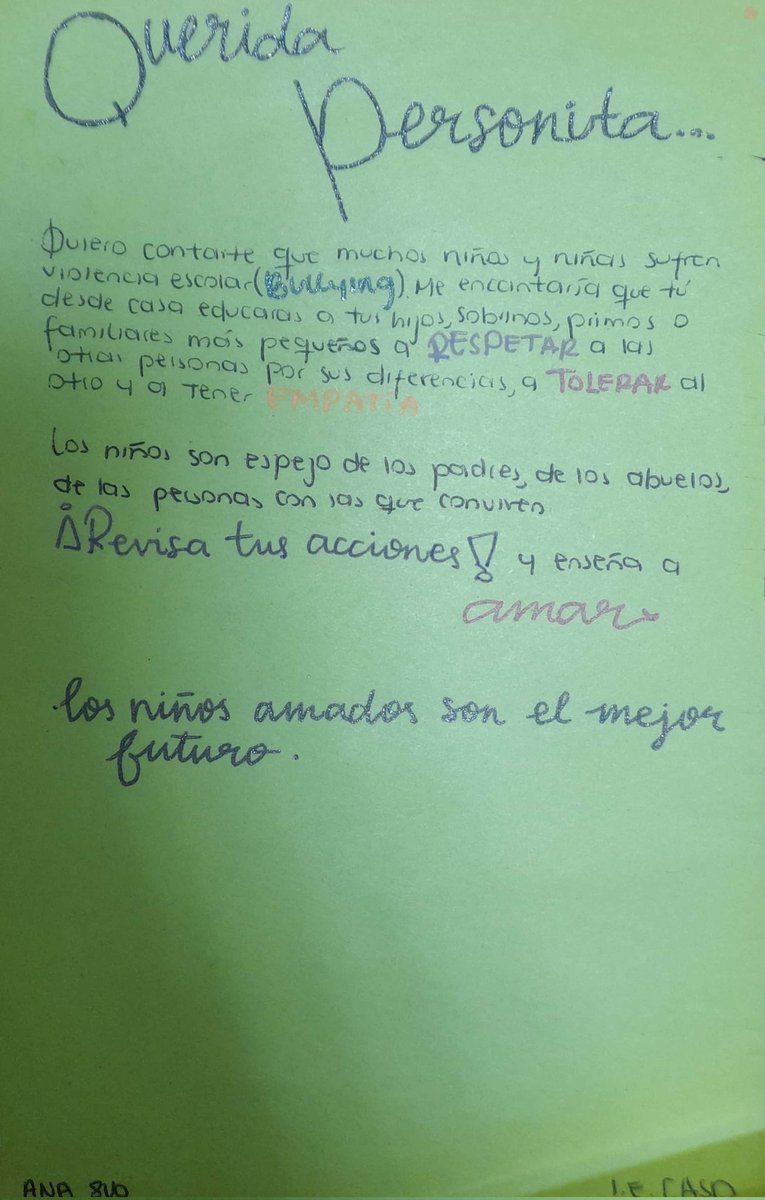 Querida
Personita...
Quiero contarte que muchos niños y niñas sufren
violencia escolar (Bullying). Me encantaría que tú
desde casa educaras a tus hijos, sobrinos, primos o
familiares más pequeños a RESPETAR a las
otras personas por sus diferencias, a TOLERAR al
otro y a tener EMPATÍA
Los niños son espejo de los padres, de los abuelos,
de las personas con las que conviven
¡Revisa tus acciones! y enseña a
amar
los niños amados son el mejor
futuro.
ANA
I.E. CASD